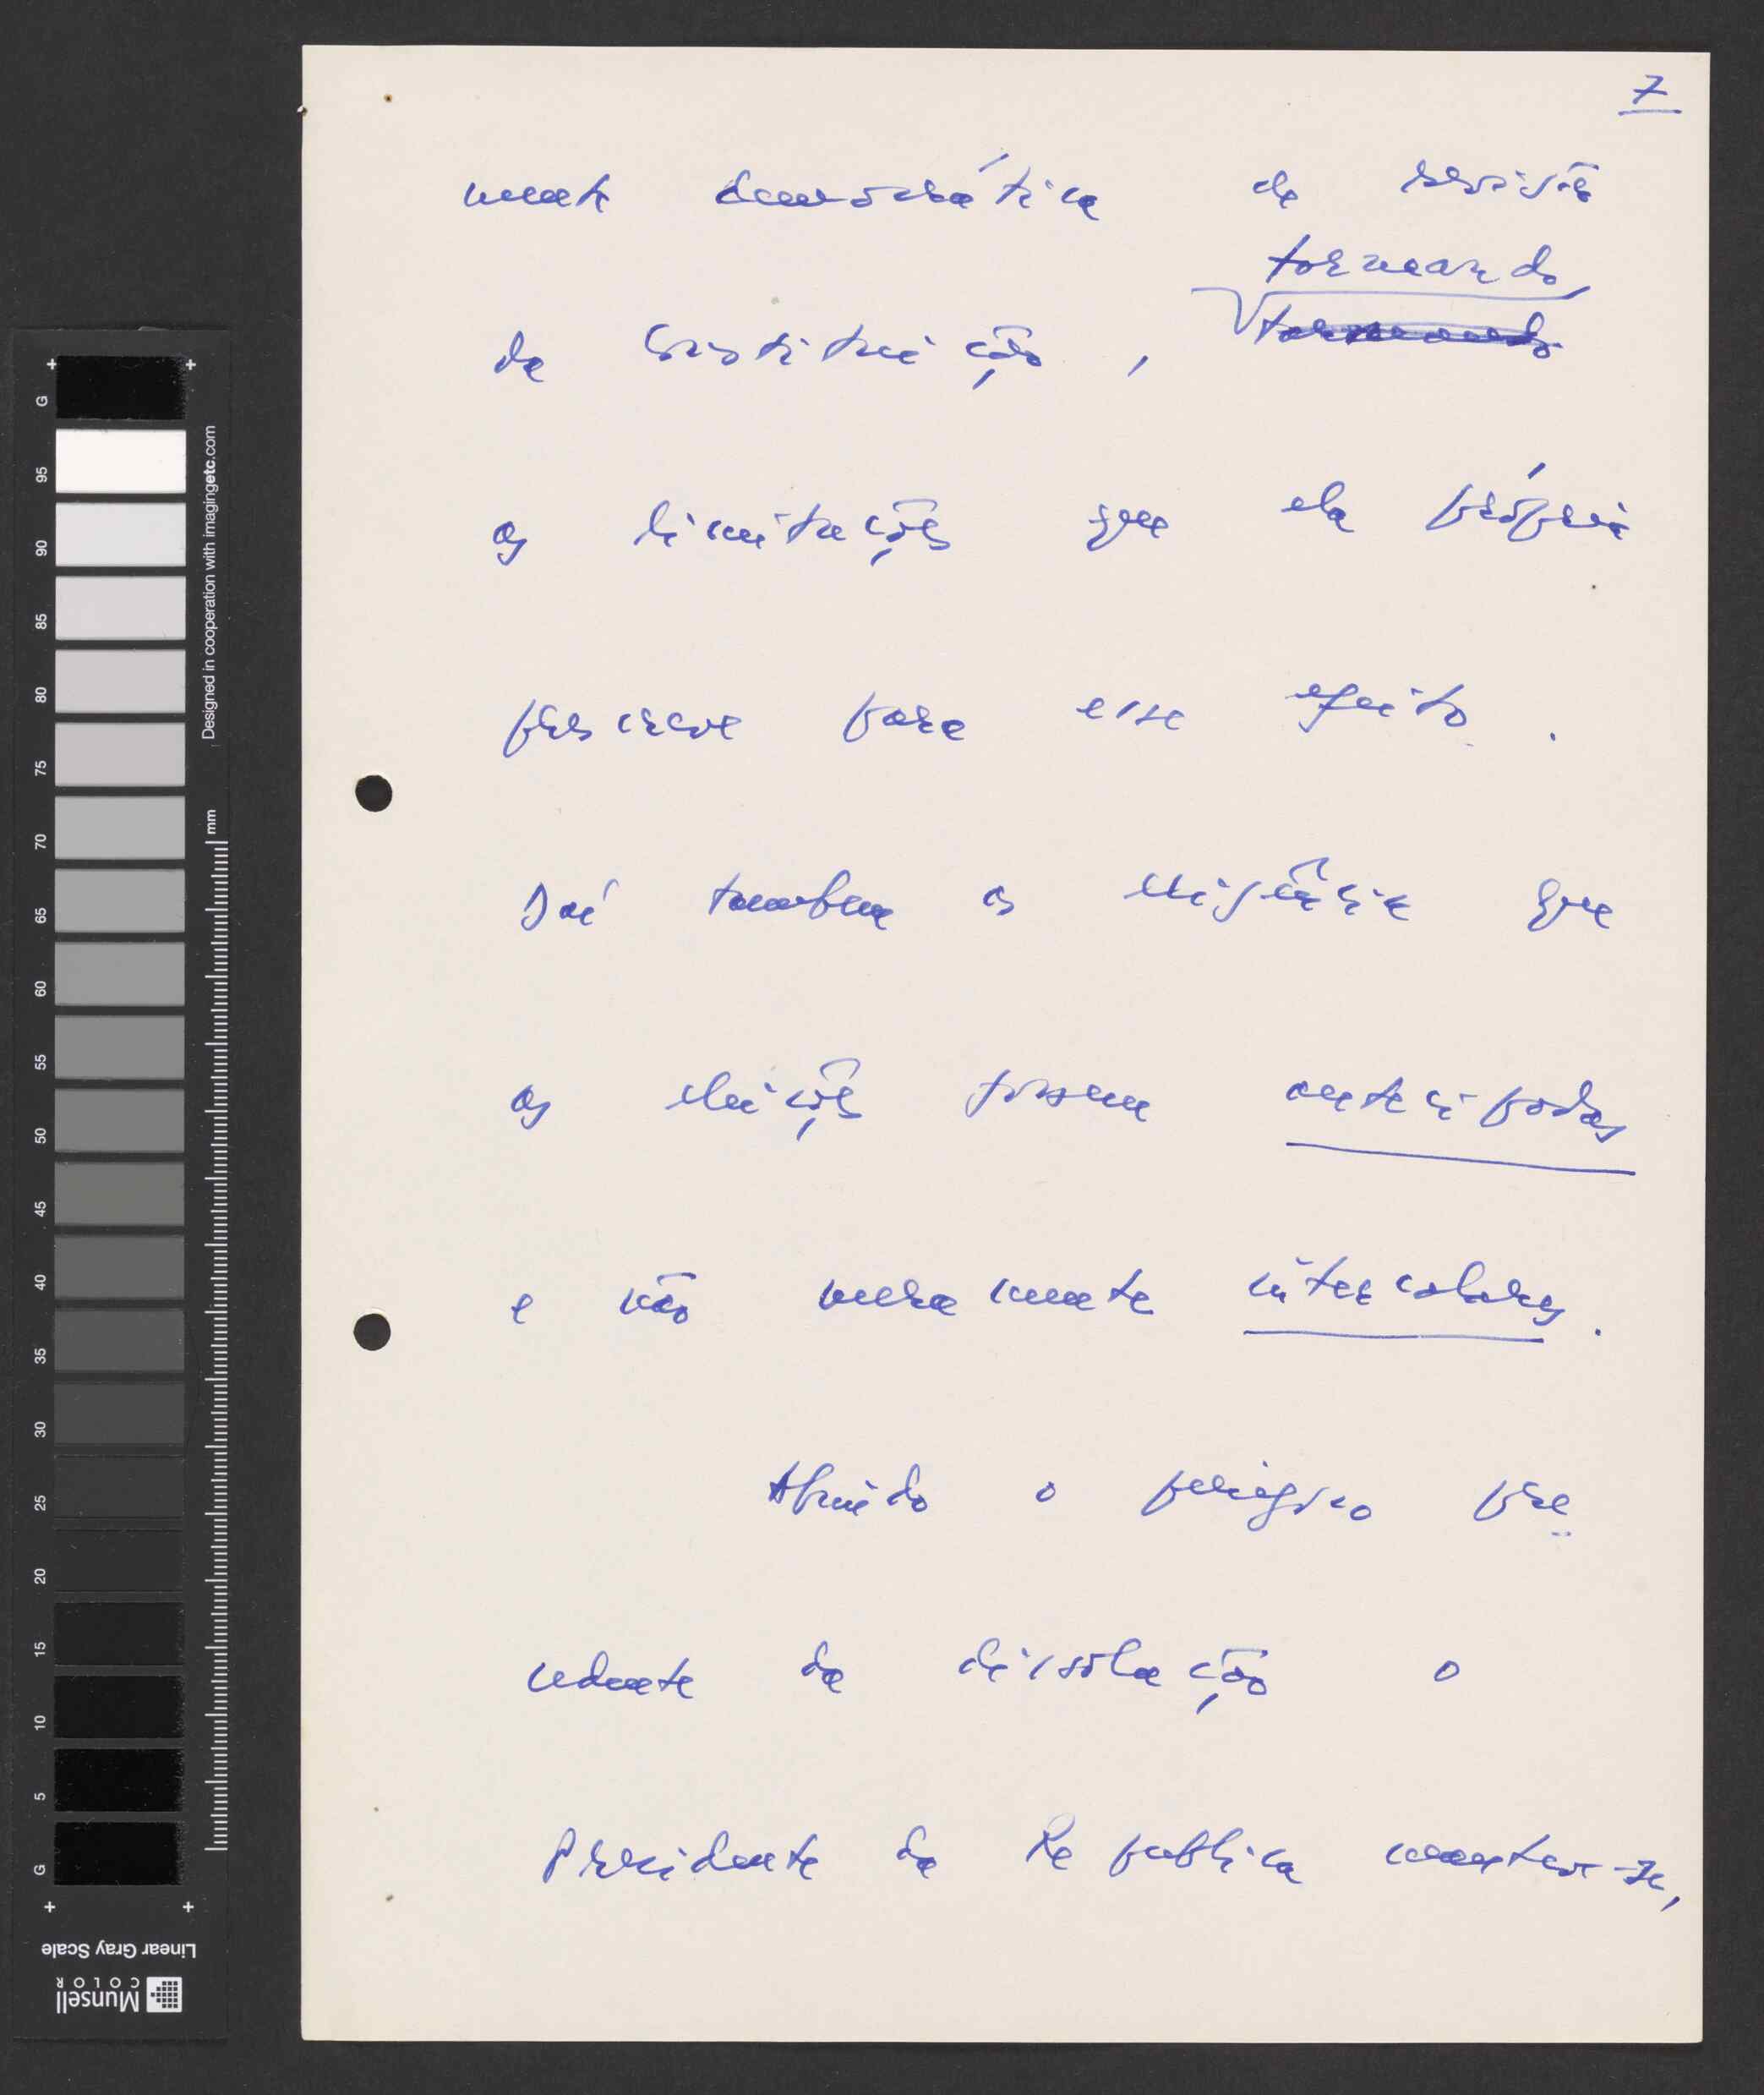 7
mente democrática da revisão
torneando
da Constituição,
as limitações que ela própria
prescreve para esse efeito.
Daí tambem a exigência que
as eleições fossem antecipadas
e não meramente intercalares.
Abrindo o perigoso pre=
cedente da dissolução o
Presidente da Republica manteve-se,
G
95
90
85
80
75
70
65
60
55
50
45
40
35
30
25
20
15
10
5
G
Designed in cooperation with imagingetc.com
mm
Linear Gray Scale
Munsell
COLOR